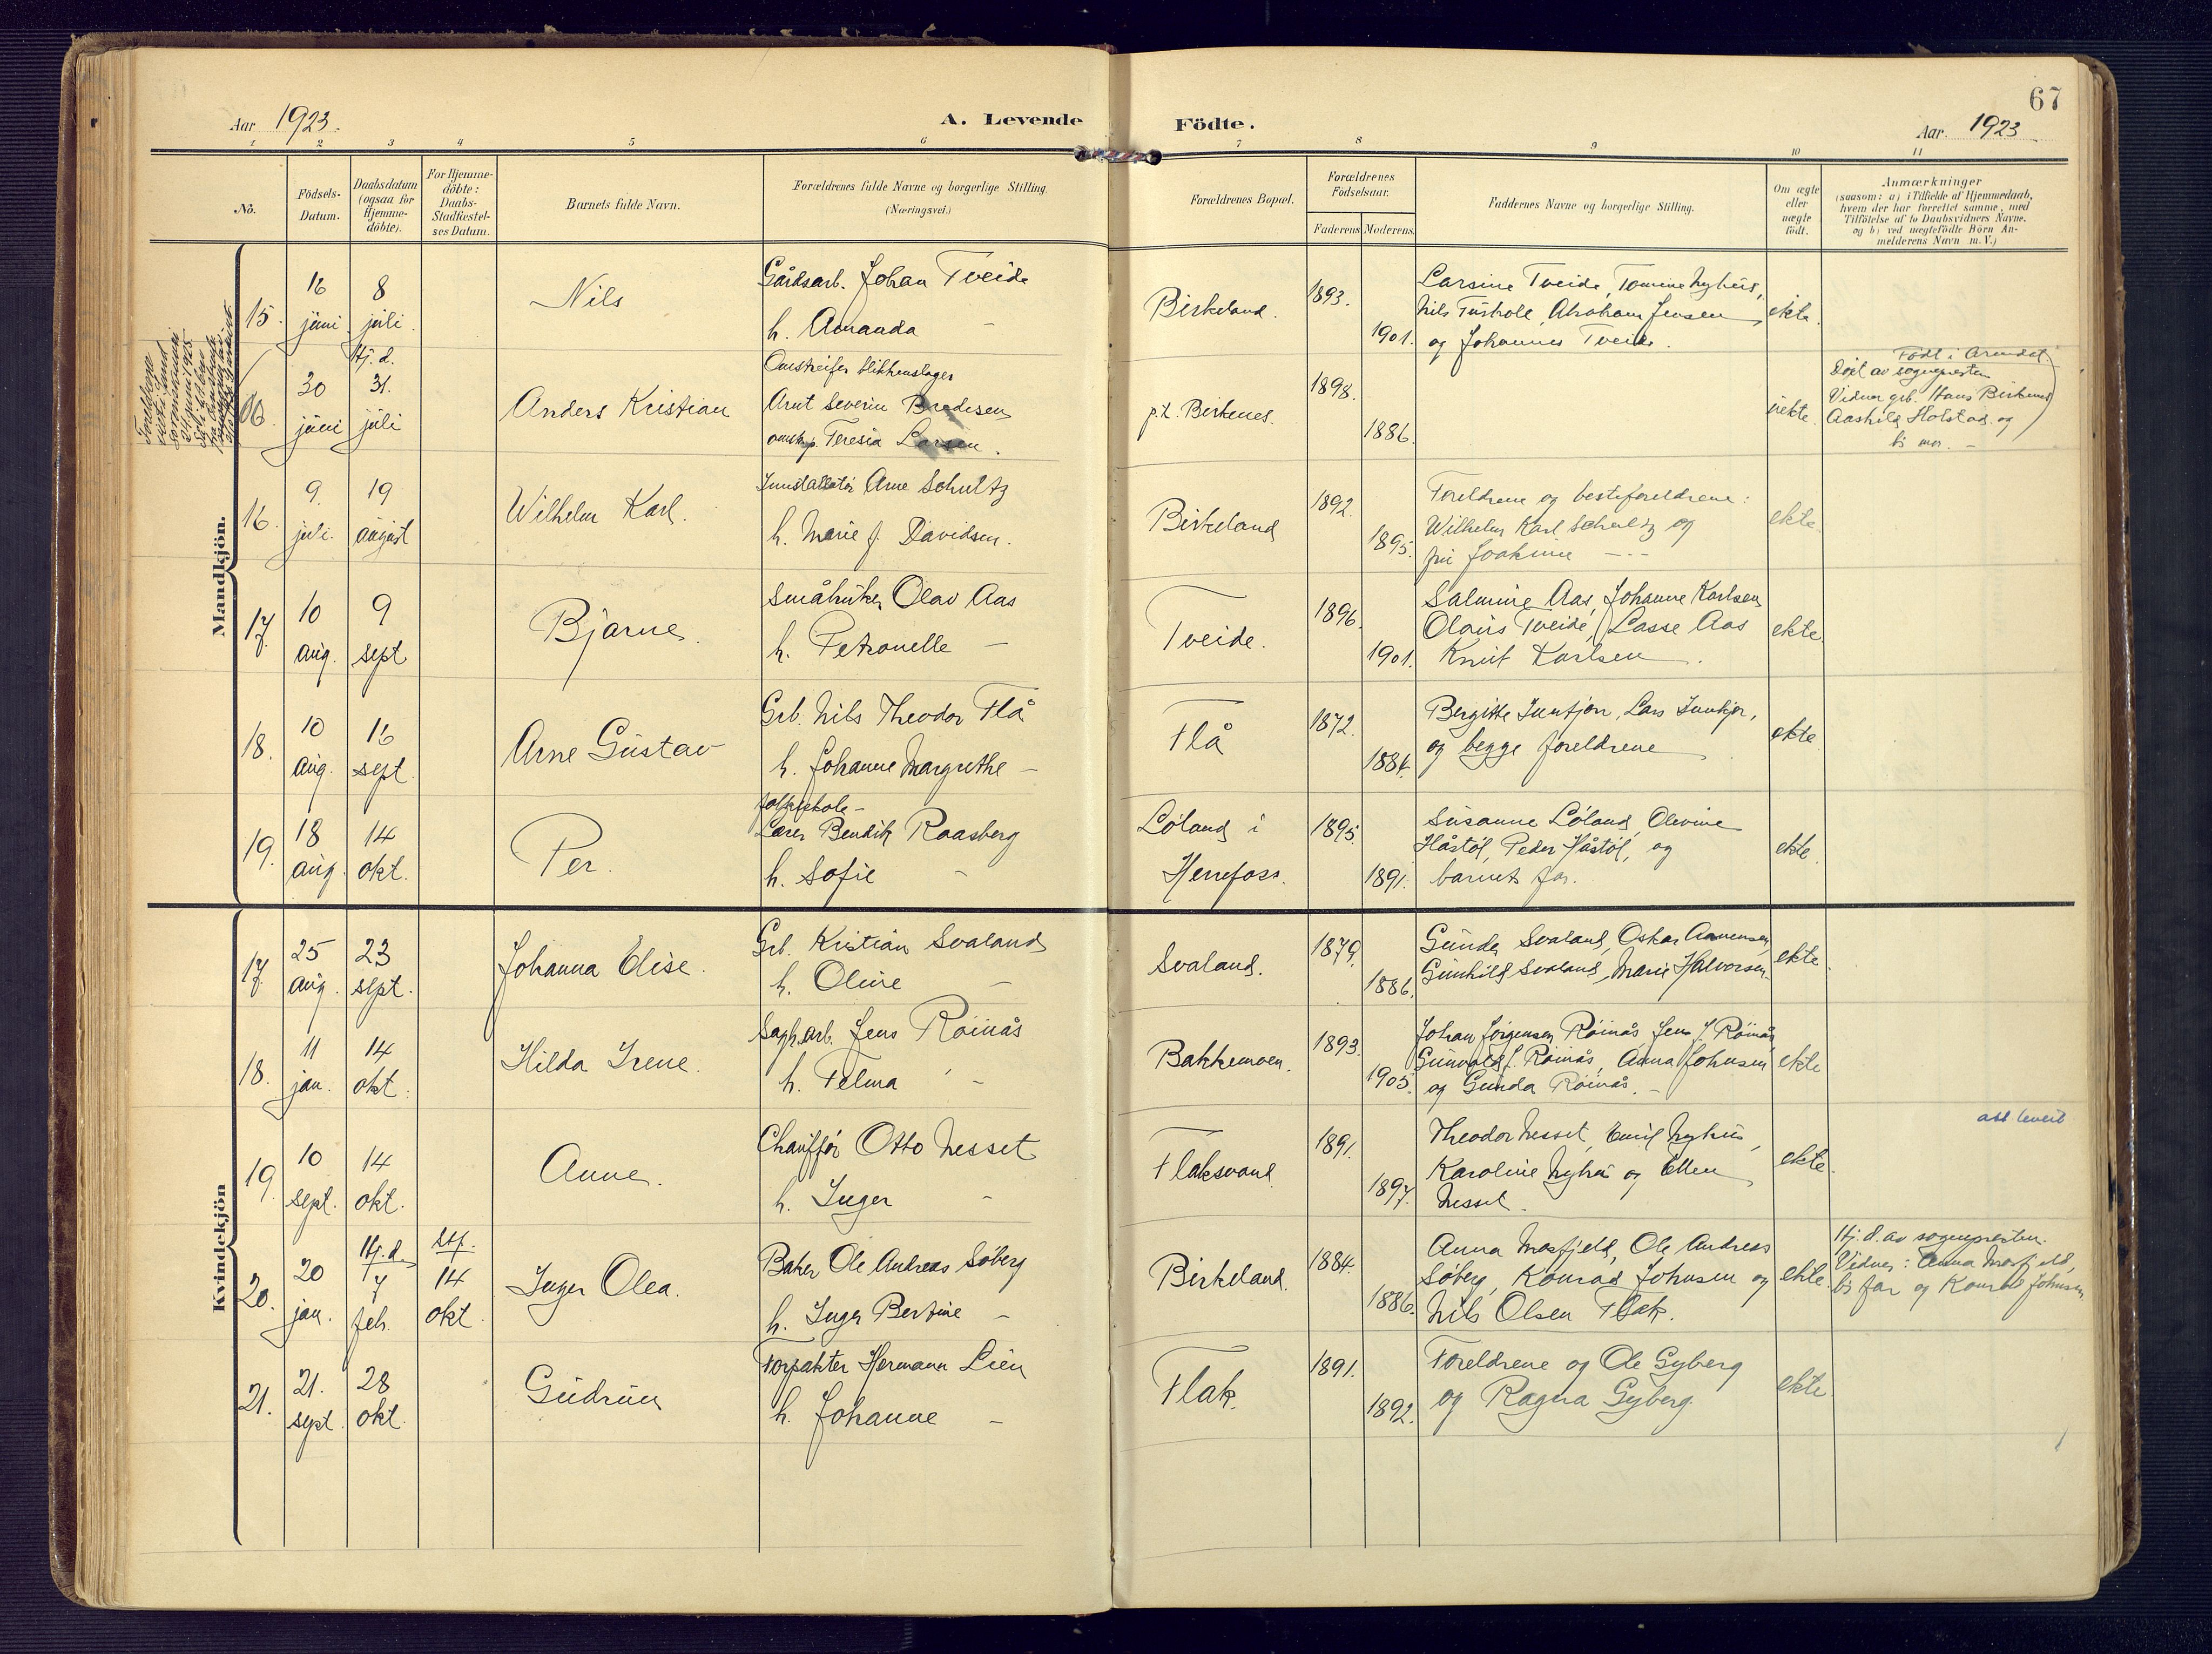 67
Aar 1923.
A. Levende
Födte.
Aar. 1923
1 2 3 4 5 6 7 8 9 10 11
No.
Födsels-
Datum.
Daabsdatum
(ogsaa for
Hjemme-
döbte).
For Hjemme-
döbte:
Daabs-
Stadfæstel-
ses Datum.
Barnets fulde Navn.
Forældrenes fulde Navne og borgerlige Stilling.
(Næringsvei.)
Forældrenes Bopæl.
Forældrenes
Födselsaar.
Faderens. Moderens.
Faddernes Navne og borgerlige Stilling.
Om ægte
eller
uægte
födt.
Anmærkninger
(saasom: a) i Tilfælde af Hjemmedaab,
hvem der har forrettet samme, med
Tilföielse af to Daabsvidners Navne,
og b) ved uægtefödte Börn An-
melderens Navn m. V.)
Mandkjön.
15.
16
juni
8
juli.
Nils
Gårdsarb. Johan Tveide
h. Amanda –
Birkeland.
1893.
1901.
Larsine Tveide, Tomine Nyhus,
Nils Tüshole, Abraham Jensen
og Johannes Tveide.
ekte.
Foreldrene
viet i
24 juni 1925
30
juni
Hj. d.
31.
juli
Anders Kristian
Omstreifer blikkenslager
Arnt Severin Bredesen
omstr.p. Teresia Larsen.
p.t. Birkenes.
1898.
1886.
uekte.
Født i Arendal.
Døpt av sognepresten
Vidner grb. Hans Birkenes
Aashild Holstad og
b's mor. –
16.
9.
juli.
19
august
Wilhelm Karl.
Innstallatør Arne Schultz
h. Marie J. Davidsen.
Birkeland
1892.
1895.
Foreldrene og besteforeldrene:
Wilhelm Karl Schultz og
fru Joakime –
ekte.
17.
10
aug.
9
sept
Bjarne.
Småbruker Olav Aas
h. Petronelle –
Tveide.
1896.
1901.
Salmine Aas, Johanne Karlsen
Olaus Tveide, Lasse Aas
Knut Karlsen.
ekte.
18.
10
aug.
16
sept.
Arne Gustav
Grb. Nils Theodor Flå
h. Johanne Margrethe –
Flå
1872.
1884.
og begge foreldrene
ekte
19.
18
aug.
14
okt.
Per.
folkeskole-
Lærer Bendik Raasberg
h. Sofie –
Løland i
Herefoss.
1895.
1891.
Susanne Løland, Olevine
Håstøl, Peder Håstøl, og
barnets far.
ekte.
Kvindekjön
17.
25
aug.
23
sept.
Johanna Elise.
Grb. Kristian Svaland
h. Oline –
Svaland.
1879.
1886.
Gunda Svaland, Oskar Aanensen,
Gunhild Svaland, Marie Halvorsen.
ekte.
18.
11
jan.
14
okt.
Hilda Irene.
Sagb.arb. Jens Röinås
h. Telma –
Bakkemoen.
1893.
1905.
Johan Jørgensen Röinås, Jens J. Röinås,
Gunvald J. Röinås, Anna Johnsen
og Gunda Röinås. –
ekte
19.
10
sept.
14
okt.
Anne.
Chauffør Otto Nesset
h. Inger –
Flaksvand
1891.
1897.
Theodor Nesset, Emil Nyhus,
Karoline Nyhus og Ellen
Nesset.
ekte.
att. levert
20.
20
jan.
Hj. d.
7
feb.
Stf.
14
okt.
Inger Olea.
Baker Ole Andreas Søberg
h. Inger Bertine –
Birkeland.
1884.
1886.
Anna Mosfjeld, Ole Andreas
Søberg, Konrad Johnsen og
Nils Olsen Flak.
ekte.
Hj. d. av sognepresten.
Vidner: Anna Mosfjeld,
b's far og Konrad Johnsen.
21.
21.
sept.
28
okt.
Gudrun
Forpakter Hermann Lien
h. Johanne –
Flak.
1891.
1892.
Foreldrene og Ole Gyberg
og Ragna Gyberg.
ekte.